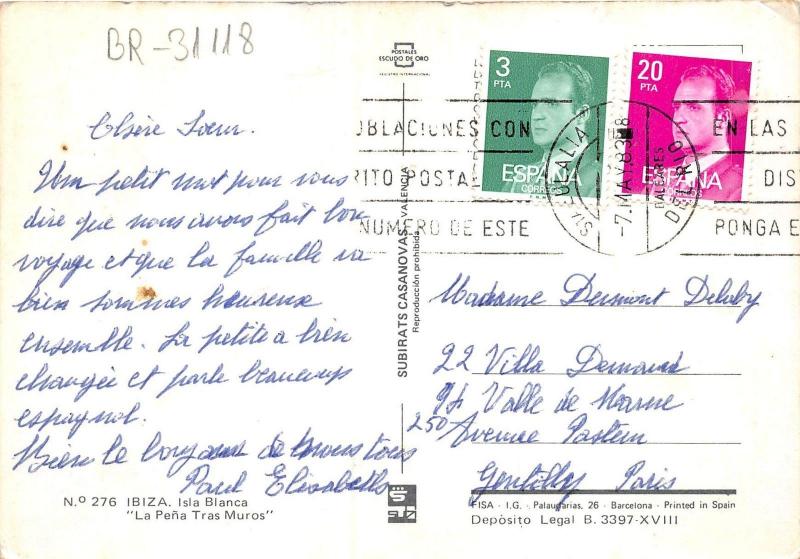 BR-31118
POSTALES
ESCUDO DE ORO
REGISTRO INTERNACIONAL
3
PTA
ESPAÑA
CORREOS
20
PTA
ESPAÑA
OBLACIONES CON
RITO POSTAL
NUMERO DE ESTE
STA. EULALIA DEL RIO
-7. MAY. 83
BALEARES
EN LAS
DIS
PONGA E
Chère Soeur.
Um petit mot pour vous
dire que nous avons fait bon
voyage et que la famille va
bien sommes heureux
ensemble. La petite a bien
changée et parle beaucoup
espagnol.
Bien le bonjour de nous tous
Paul Elisabeth
SUBIRATS CASANOVAS - VALENCIA
Reproducción prohibida
Madame Dermont Deloby
22 Villa Demand
94 Valle de Marne
250 Avenue Pasteur
Gentilly Paris
N.º 276 IBIZA. Isla Blanca
"La Peña Tras Muros"
FISA - I.G. - Palaudarias, 26 - Barcelona - Printed in Spain
Depòsito Legal B. 3397-XVIII